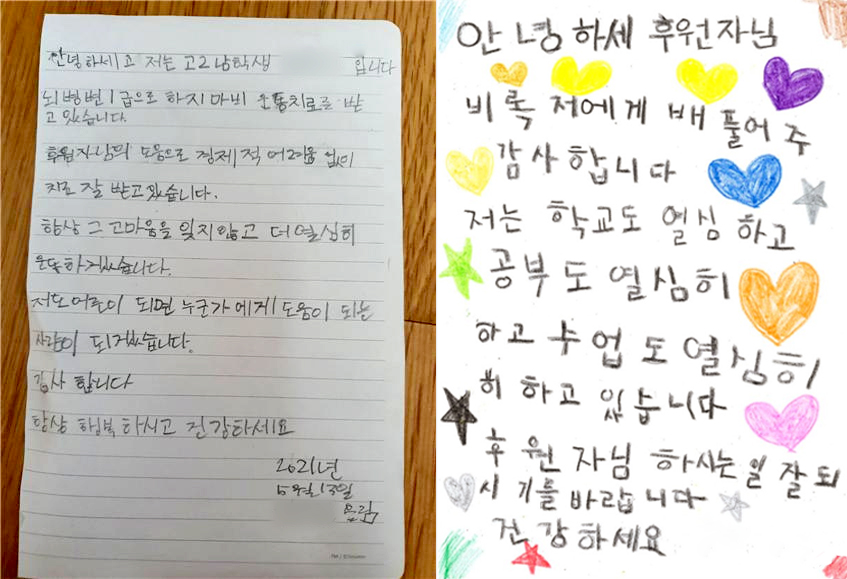 안녕하세요 저는 고2 남학생 입니다
뇌병변 1급으로 하지마비 운동치료를 받
고 있습니다.
후원자님의 도움으로 경제적 어려움 없이
치료 잘 받고있습니다.
항상 그 고마움을 잊지않고 더 열심히
운동하겠습니다.
저도 어른이 되면 누군가에게 도움이 되는
사람이 되겠습니다.
감사 합니다
항상 행복 하시고 건강하세요
2021년
5월13일
드림
안녕하세 후원자님
비록 저에게 배풀어주
감사합니다
저는 학교도 열심 하고
공부도 열심히
하고 수업도 열심히
히 하고 있습니다
후원자님 하시는 일 잘되
시기를 바랍니다
건강하세요